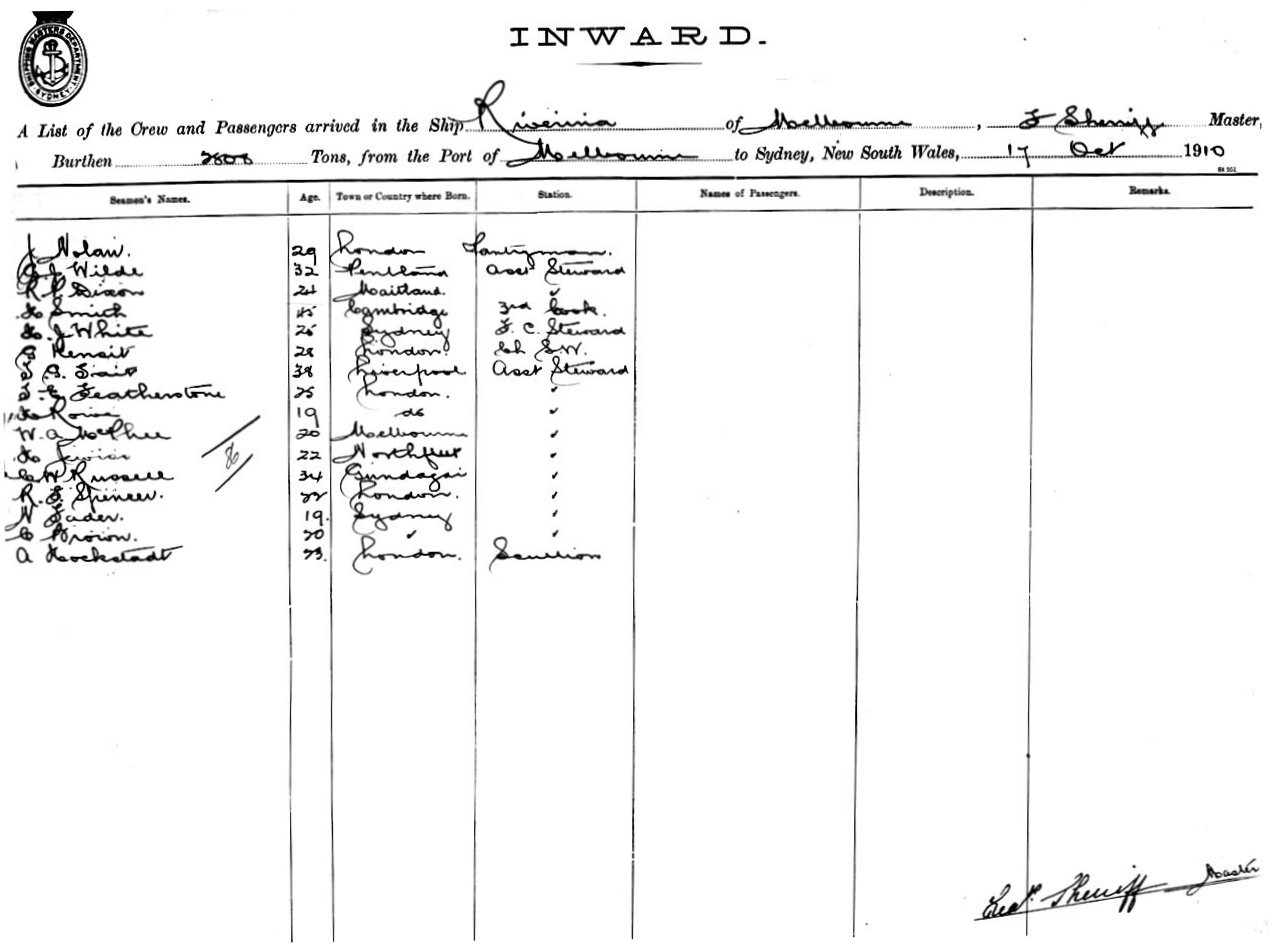 SHIPPING MASTERS DEPARTMENT
SYDNEY
INWARD.
A List of the Crew and Passengers arrived in the Ship Riverina of Melbourne, F Sherriff Master,
Burthen Tons, from the Port of Melbourne to Sydney, New South Wales, 17 Oct 1910
Seamen's Names. Age. Town or Country where Born. Station. Names of Passengers. Description. Remarks.
J Nolan. 29 London Pantryman.
J Wilde 32 Pentland Asst Steward
R. P. Dixon 24 Maitland. ✓
H Smith 45 Cambridge 3rd Cook.
H. J White 26 Sydney F. C. Steward
Kensit 28 London. Ch S.W.
T G. Tait 38 Liverpool Asst Steward
T. E. Featherstone 25 London. ✓
H Rowe 19 do ✓
W. A McPhee 20 Melbourne ✓
H Lewis 22 Northfleet ✓
C W Russell 34 Gundagai ✓
R. F. Spencer. 22 London. ✓
N Fader. 19. Sydney ✓
C Brown. 20 ✓ ✓
A Hockstadt 23. London. Scullion
Sherriff Master